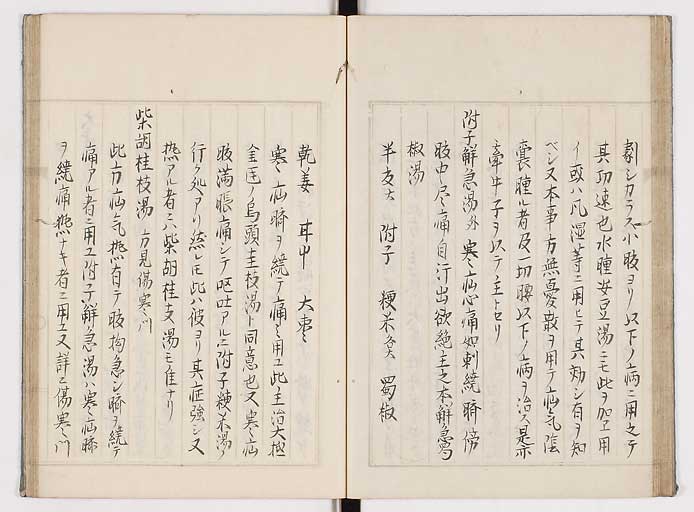 劇シカラス小腹ヨリ以下ノ病ニ用之テ
其功速也水腫安豆湯ニモ此ヲ加ヱ用
イ或ハ凡湿等ニ用ヒテ其効シ有ヲ知
ベシ又本事方無憂散ヲ用テ疝気陰
嚢腫ル者及一切腰以下ノ病ヲ治ス是亦
牽牛子ヲ以テ主トセリ
附子解急湯外 寒疝心痛如刺繞臍傍
腹中尽痛自汗出欲絶主之本解急蜀
椒湯
半夏大 附子 粳米各大 蜀椒
乾姜 甘中 大棗
寒疝臍ヲ繞テ痛ニ用ユ此主治大抵
金匱ノ烏頭圭枝湯ト同意也又寒疝
腹満脹痛シテ嘔吐アルニ附子粳米湯ノ
行ク処アリ然レ𪜈此ハ彼ヨリ其症強シ又
熱アル者ニハ柴胡桂支湯モ佳ナリ
柴胡桂枝湯 方見傷寒門
此方疝気熱有テ腹拘急シ臍ヲ繞テ
痛アル者ニ用ユ附子解急湯ハ寒疝臍
ヲ繞痛熱ナキ者ニ用ユ又詳ニ傷寒門